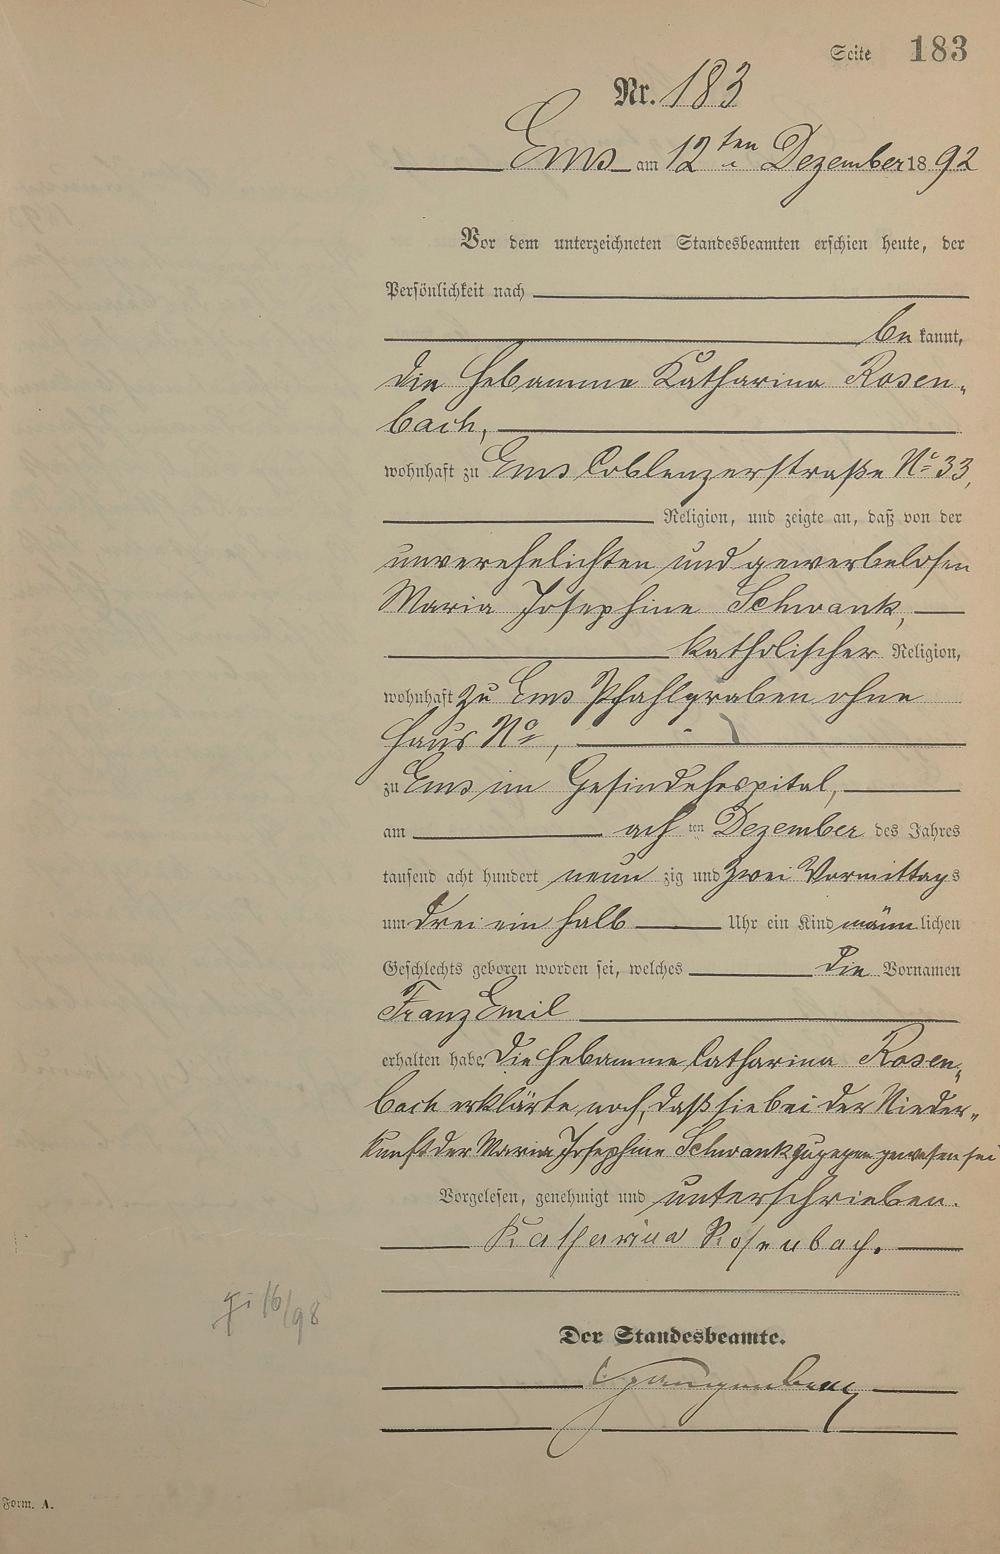 Seite 183
Nr. 183
Ems am 12ten Dezember 1892
Vor dem unterzeichneten Standesbeamten erschien heute, der
Persönlichkeit nach
bekannt,
die Hebamme Katharina Rosen-
bach,
wohnhaft zu Ems Coblenzerstraße No 33,
Religion, und zeigte an, daß von der
unverehelichten und gewerbelosen
Maria Josephine Schwank,
katholischer Religion,
wohnhaft zu Ems Pfahlgraben ohne
Haus No,
zu Ems im Gesindehospital,
am achten Dezember des Jahres
tausend acht hundert neunzig und zwei Vormittags
um drei ein halb Uhr ein Kind männlichen
Geschlechts geboren worden sei, welches die Vornamen
Franz Emil
erhalten habe. Die Hebamme Catharina Rosen-
bach erklärte noch, daß sie bei der Nieder-
kunft der Maria Josephine Schwank zugegen gewesen sei
Vorgelesen, genehmigt und unterschrieben.
Katharina Rosenbach.
16/98
Der Standesbeamte.
Form. A.